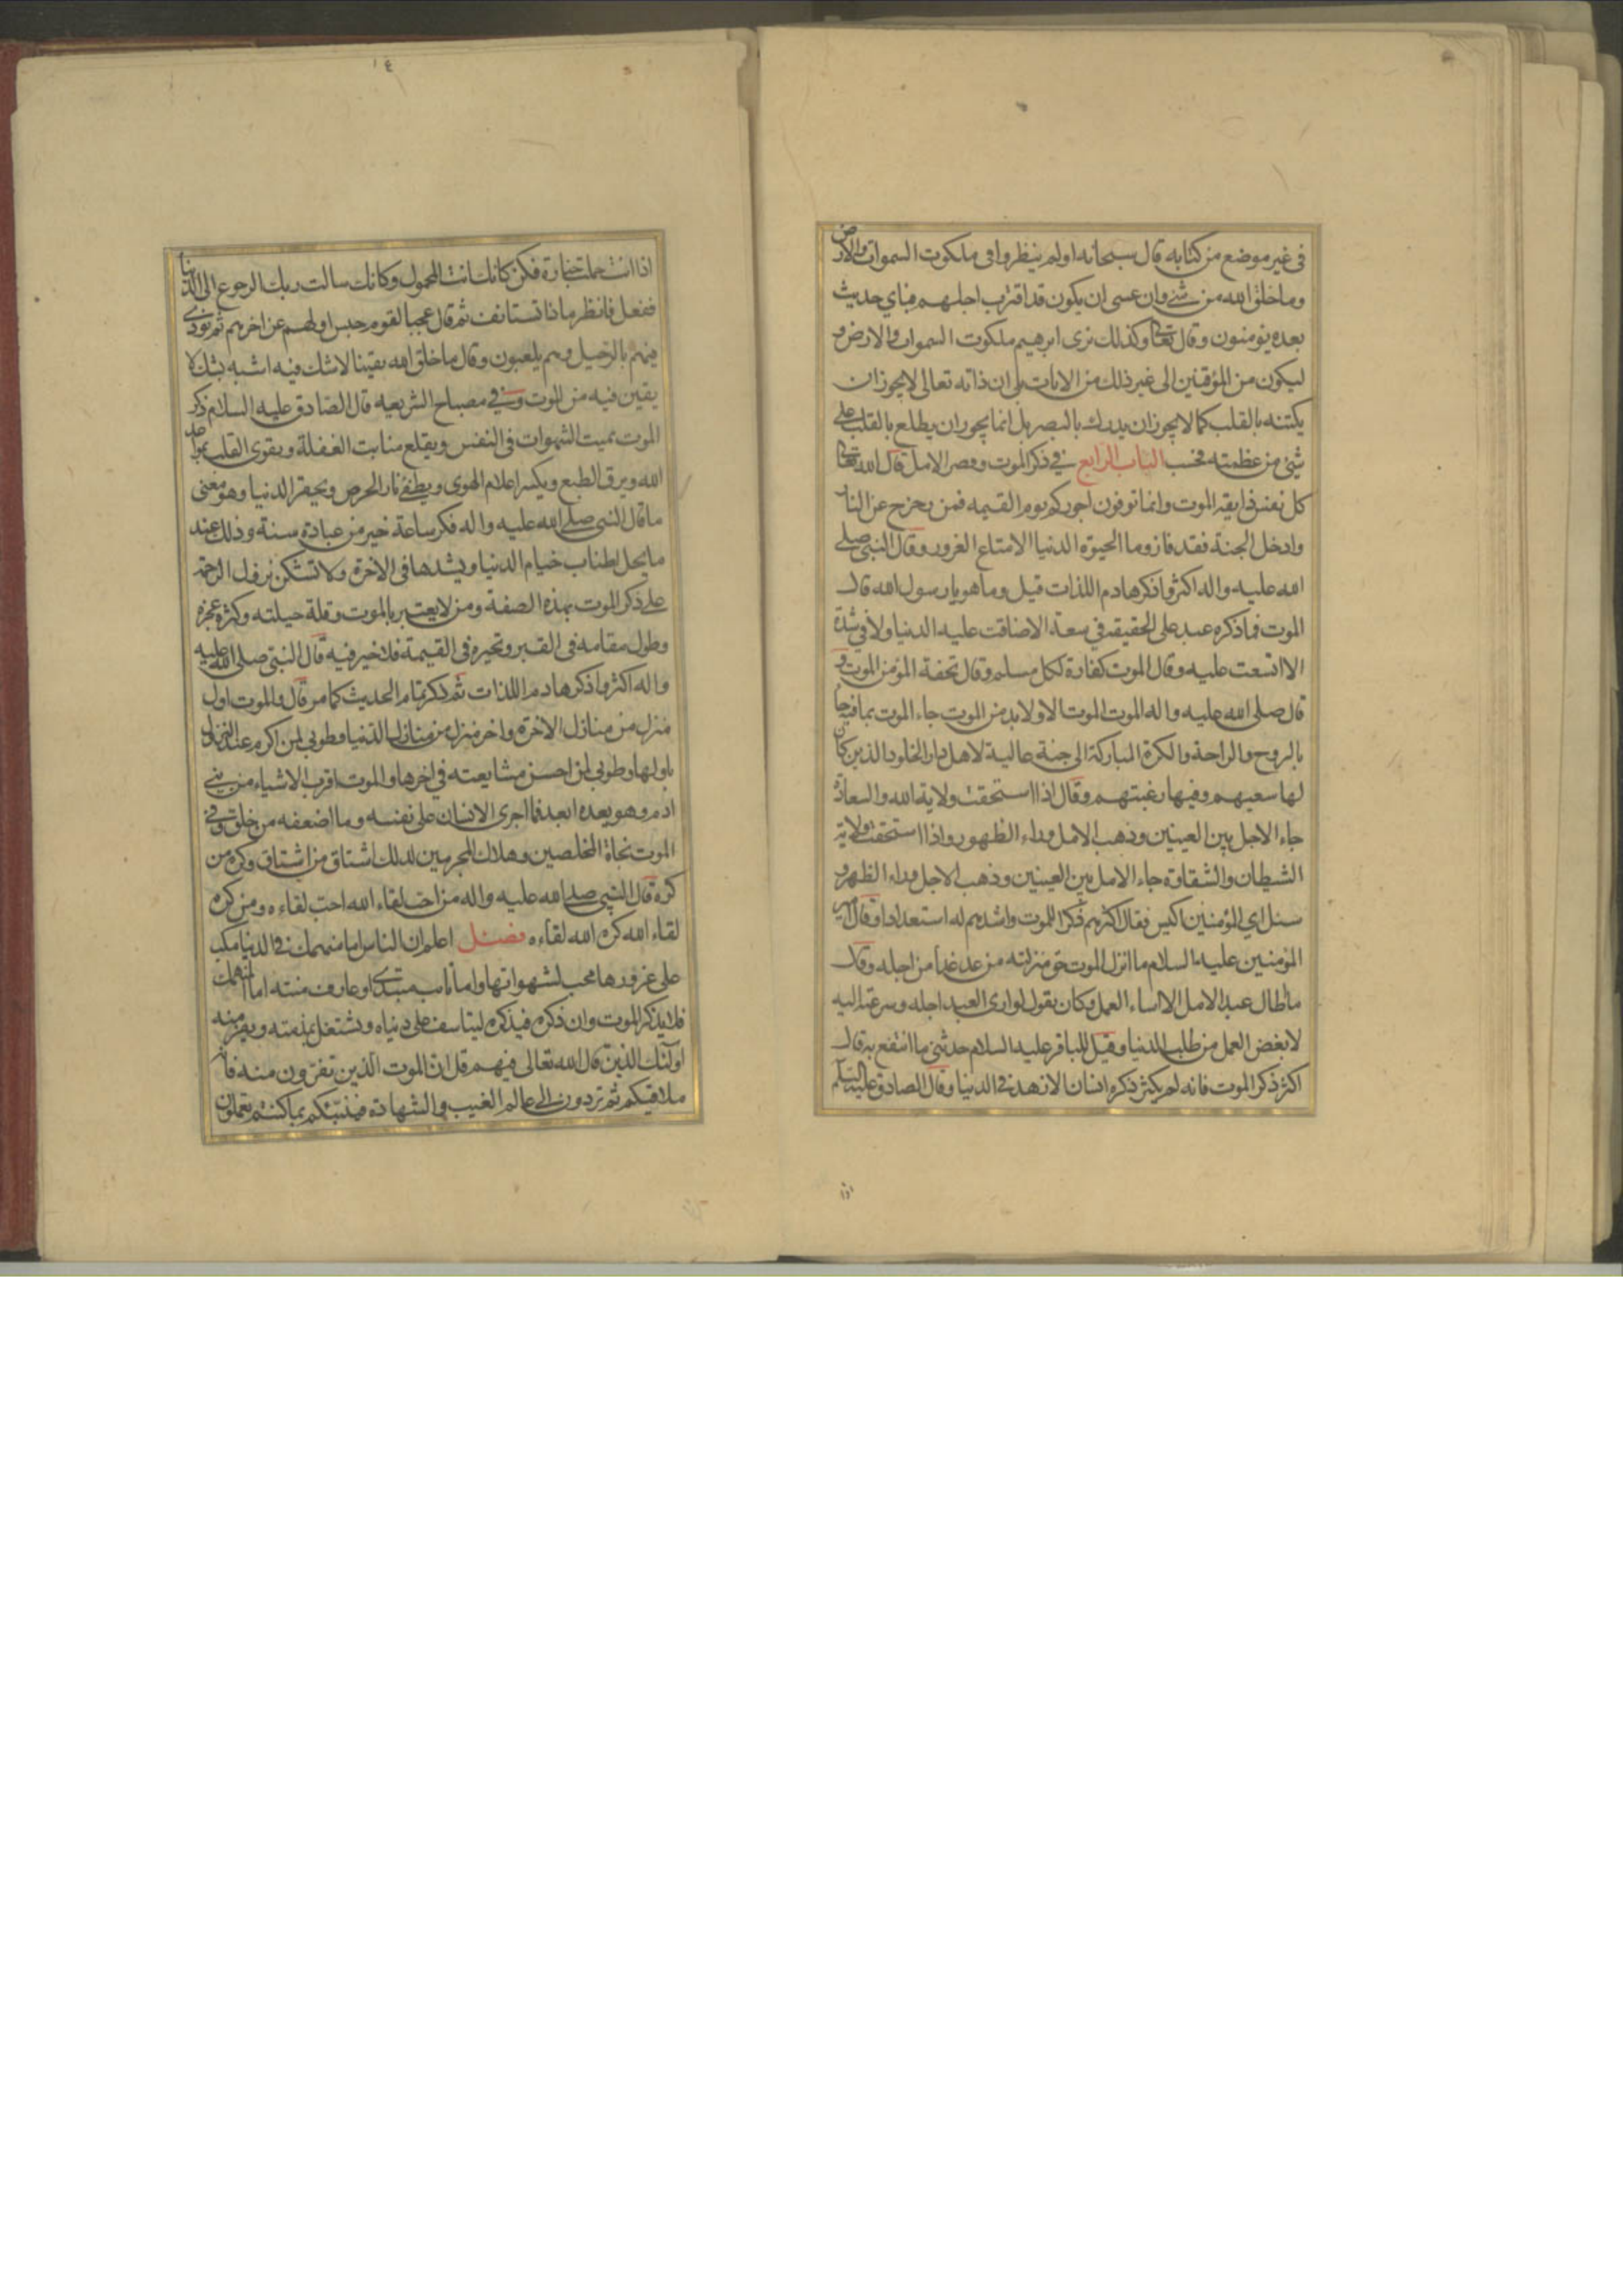 في غير موضع من كتابه قال سبحانه اولم ينظروا في ملكوت السموات والارض
وما خلق الله من شئ وان عسى ان يكون قد اقترب اجلهم فباي حديث
بعده يؤمنون وقال تعالى وكذلك نرى ابرهيم ملكوت السموات والارض و
ليكون من المؤقنين الى غير ذلك من الايات بلى ان ذاته تعالى لا يجوز ان
يكتنه بالقلب كما لا يجوز ان يدرك بالبصر بل انما يجوز ان يطلع بالقلب على
شئ من عظمته فحسب الباب الرابع في ذكر الموت وقصر الامل قال الله تعالى
كل نفس ذايقة الموت وانما توفون اجوركم يوم القيمه فمن زحزح عن النار
وادخل الجنة فقد فاز وما الحيوة الدنيا الا متاع الغرور وقال النبي صلى
الله عليه واله اكثروا ذكر هادم اللذات قيل وما هو يا رسول الله قال
الموت فما ذكره عبد على الحقيقه في سعة الا ضاقت عليه الدنيا ولا في شدة
الا اتسعت عليه وقال الموت كفارة لكل مسلم وقال تحفة المؤمن الموت و
قال صلى الله عليه واله الموت الموت الا ولا بد من الموت جاء الموت بما فيه جاء
بالروح والراحة والكرة المباركة الى جنة عالية لاهل دار الخلود الذين كان
لها سعيهم وفيها رغبتهم وقال اذا استحقت ولاية الله والسعادة
جاء الاجل بين العينين وذهب الامل وراء الظهور واذا استحقت ولاية
الشيطان والشقاوة جاء الامل بين العينين وذهب الاجل وراء الظهر و
سئل اي المؤمنين اكيس فقال اكثرهم ذكرا للموت واشدهم له استعدادا وقال امير
المؤمنين عليه السلام ما انزل الموت حق منزلته من عد غدا من اجله وقال
ما اطال عبد الامل الا اساء العمل وكان يقول لو راى العبد اجله وسرعته اليه
لابغض العمل من طلب الدنيا وقيل للباقر عليه السلام حدثني ما انتفع به قال
اكثر ذكر الموت فانه لم يكثر ذكره انسان الا زهد في الدنيا وقال الصادق عليه السلام
اذا
اذا انت حملت جنازة فكن كانك انت المحمول وكانك سالت ربك الرجوع الى الدنيا
ففعل فانظر ماذا تستانف ثم قال عجبا لقوم حبس اولهم عن اخرهم ثم نودي
فيهم بالرحيل وهم يلعبون وقال ما خلق الله يقينا لا شك فيه اشبه بشك لا
يقين فيه من الموت وفي مصباح الشريعه قال الصادق عليه السلام ذكر
الموت يميت الشهوات في النفس ويقلع منابت الغفلة ويقوى القلب بمواعد
الله ويرق الطبع ويكسر اعلام الهوى ويطفئ نار الحرص ويحقر الدنيا وهو معنى
ما قال النبي صلى الله عليه واله فكر ساعة خير من عبادة سنة وذلك عند
ما يحل اطناب خيام الدنيا ويشدها في الاخرة ولا تشكن بنزول الرحمة
على ذكر الموت بهذه الصفة ومن لا يعتبر بالموت وقلة حيلته وكثرة عجزه
وطول مقامه في القبر وتحيره في القيمة فلا خير فيه قال النبي صلى الله عليه
واله اكثروا ذكر هادم اللذات ثم ذكر تمام الحديث كما مر قال والموت اول
منزل من منازل الاخرة واخر منزل من منازل الدنيا فطوبى لمن اكرم عند النزول
باولها وطوبى لمن احسن مشايعته في اخرها والموت اقرب الاشياء من بني
ادم وهو يعده ابعد فما اجرى الانسان على نفسه وما اضعفه من خلق وفي
الموت نجاة المخلصين وهلاك المجرمين لذلك اشتاق من اشتاق وكره من
كره قال النبي صلى الله عليه واله من احب لقاء الله احب لقاءه ومن كره
لقاء الله كره الله لقاءه فصل اعلم ان الناس اما منهمك في الدنيا مكب
على غرورها محب لشهواتها واما تائب مبتدى او عارف منته اما المنهمك
فلا يذكر الموت وان ذكره فيذكره ليتاسف على دنياه ويشتغل بمذمته ويفر منه
اولئك الذين قال الله تعالى فيهم قل ان الموت الذين تفرون منه فانه
ملاقيكم ثم تردون الى عالم الغيب والشهادة فينبئكم بما كنتم تعملون